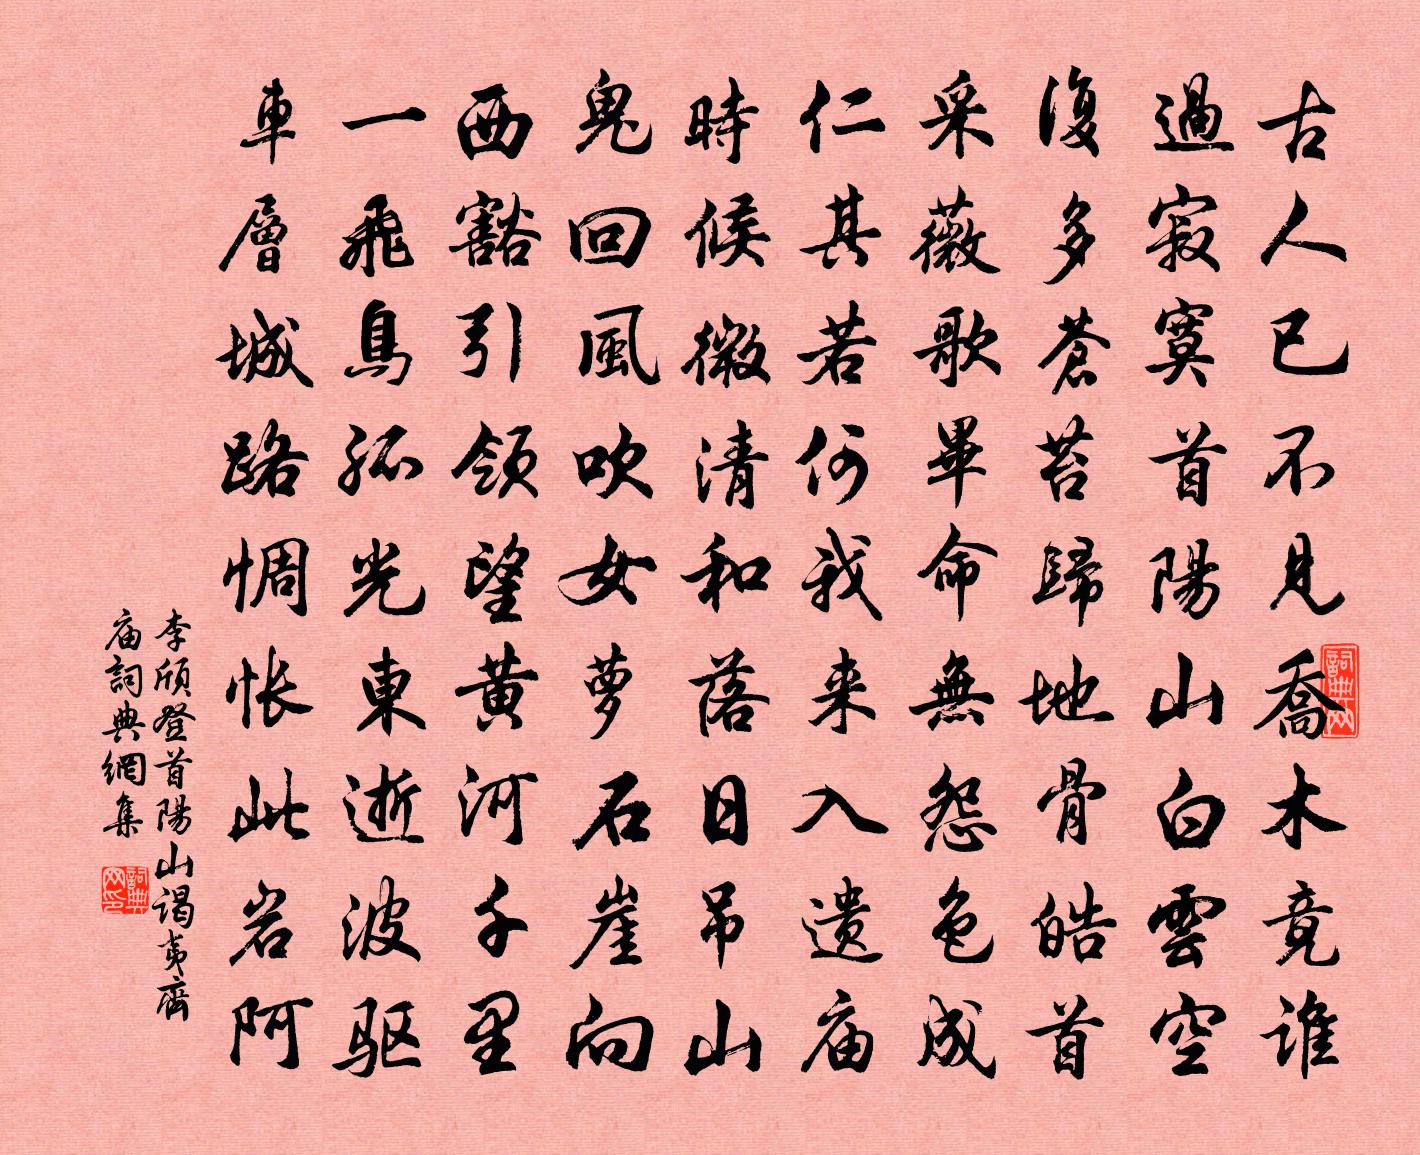 古人已不見喬木竟谁
過寂寞首陽山白雲空
復多蒼苔歸地骨皓首
采薇歌畢命無怨色成
仁其若何我来入遗庙
時候微清和落日吊山
鬼回風吹女萝石崖向
西豁引領望黄河千里
一飛鳥孤光東逝波驱
車層城路惆怅此岩阿
李颀登首陽山谒夷齊
庙詞典網集
詞典网
詞典网印